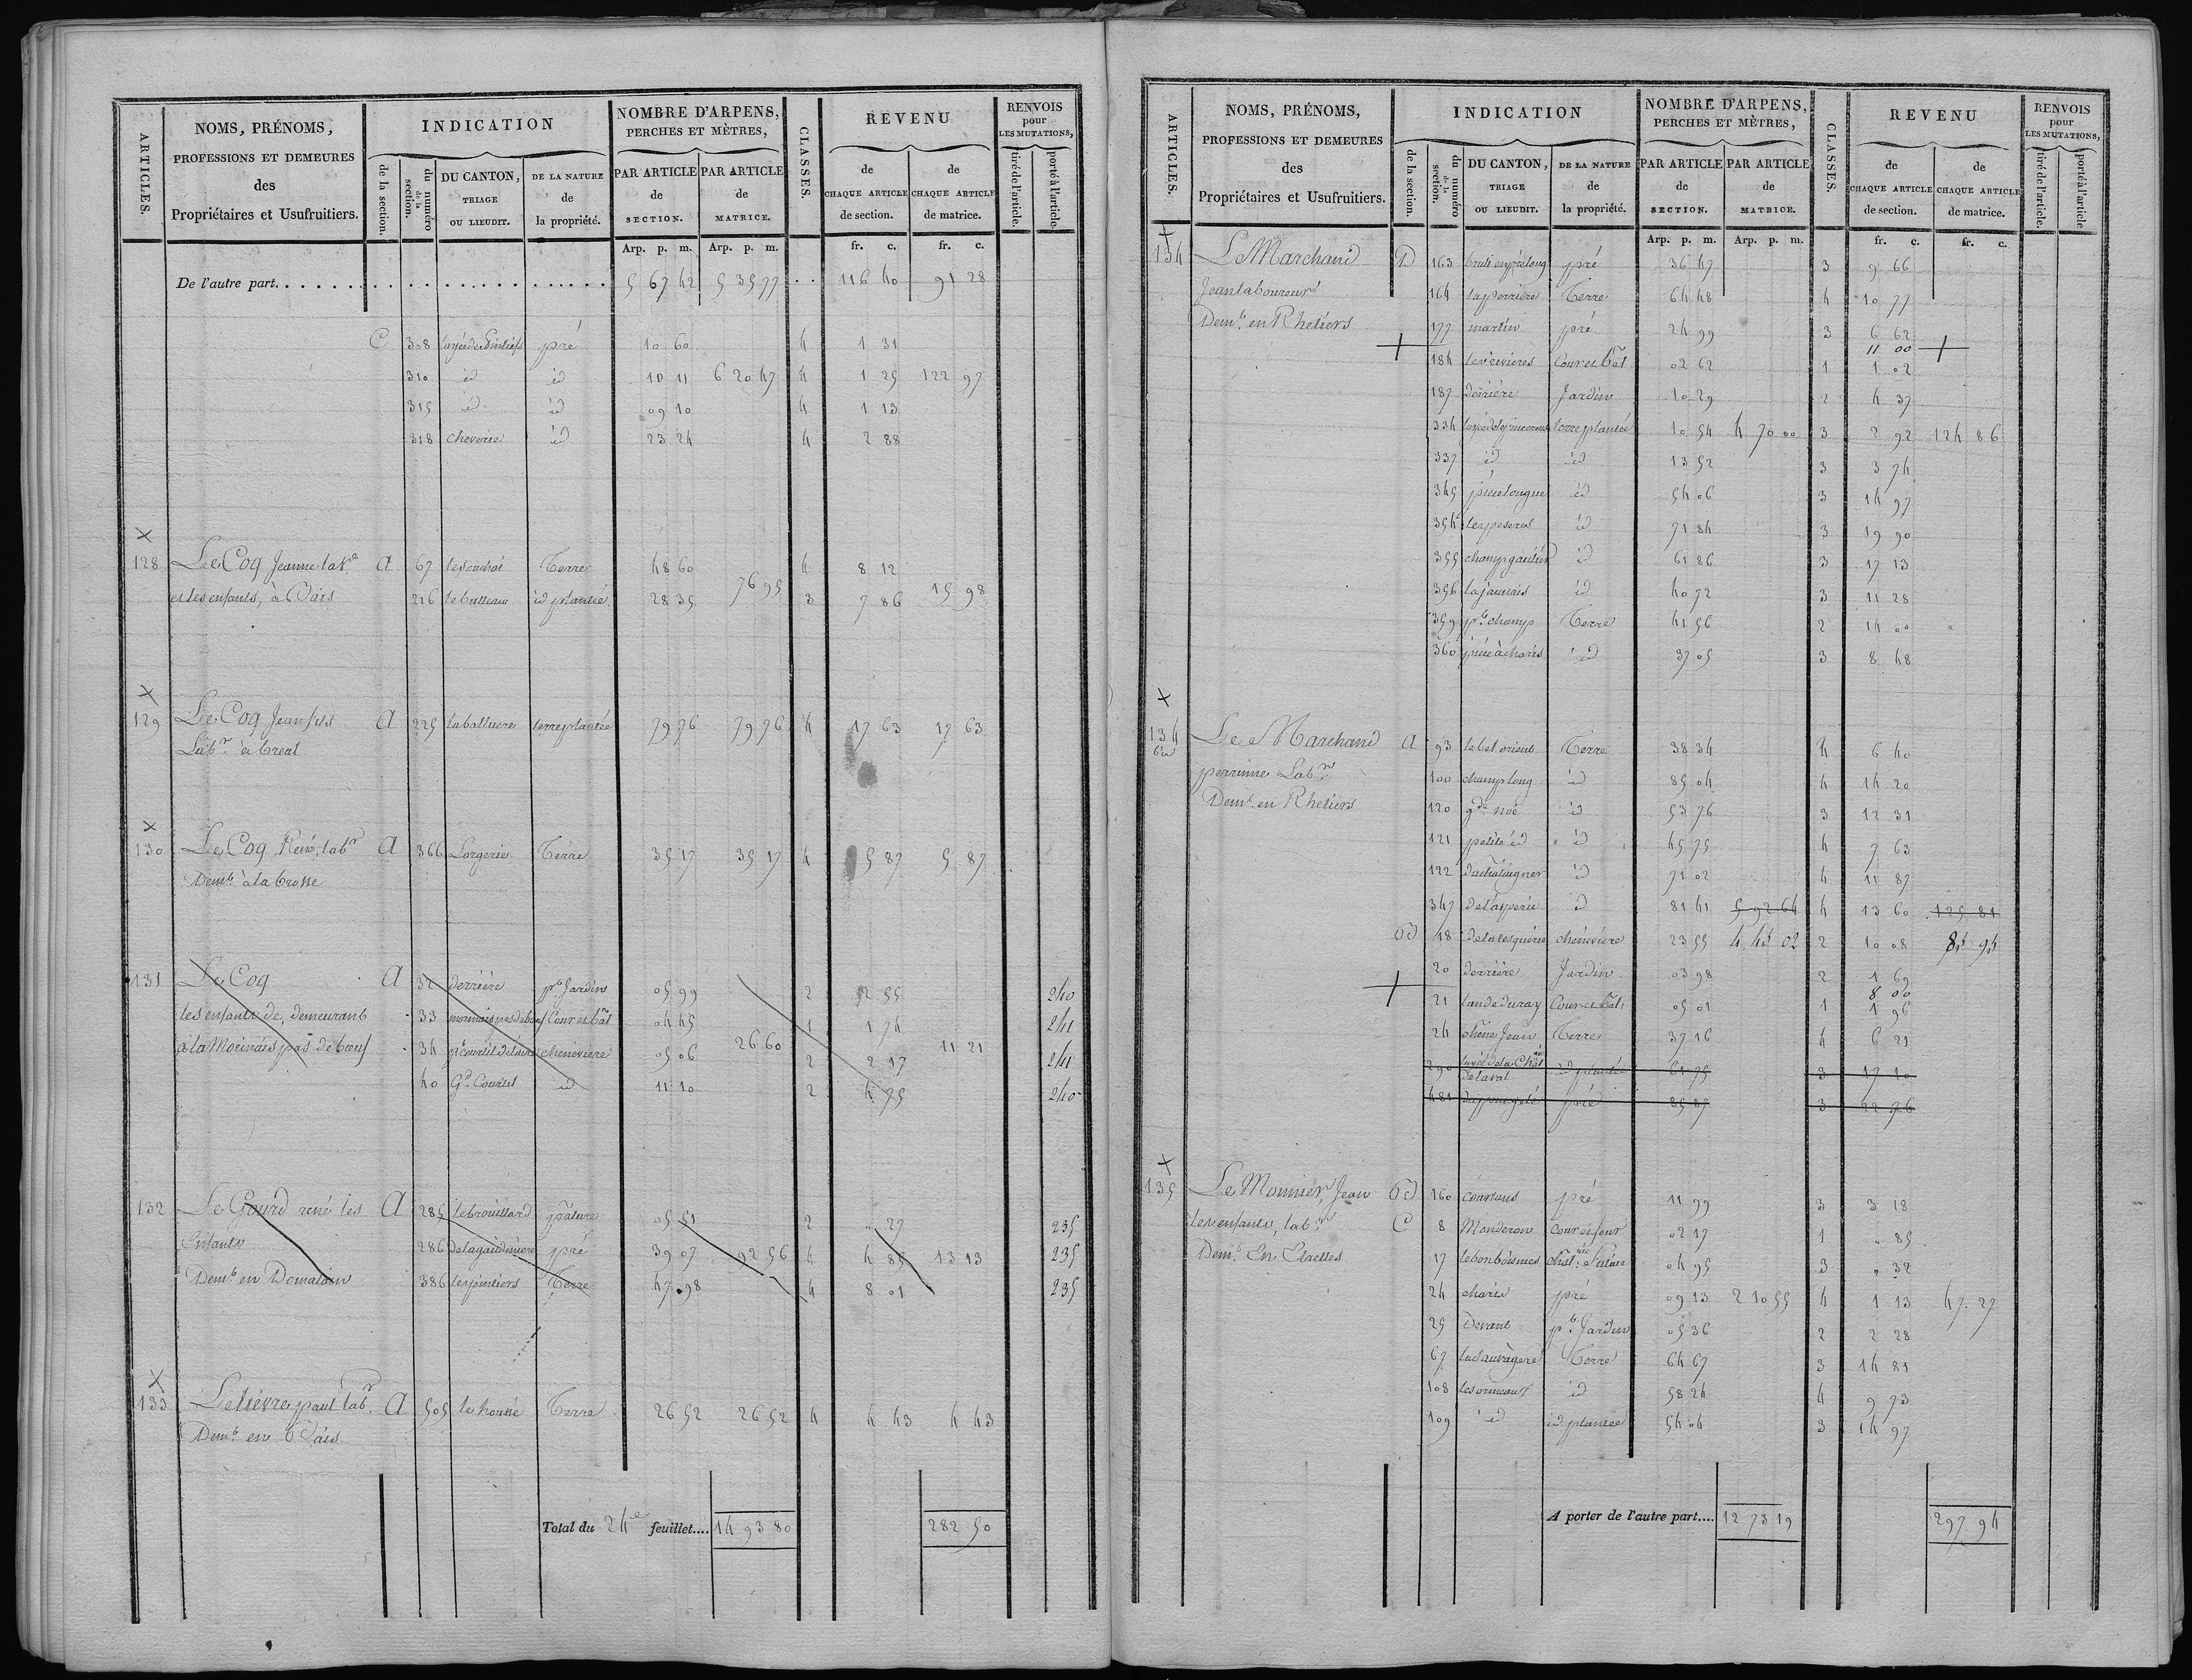 ARTICLES.
NOMS, PRÉNOMS,
PROFESSIONS ET DEMEURES
des
Propriétaires et Usufruitiers.
INDICATION
de la section.
du numéro de la section.
DU CANTON, TRIAGE OU LIEUDIT.
DE LA NATURE de la propriété.
NOMBRE D'ARPENS,
PERCHES ET MÈTRES,
PAR ARTICLE de SECTION.
PAR ARTICLE de MATRICE.
CLASSES.
REVENU
de CHAQUE ARTICLE de section.
de CHAQUE ARTICLE de matrice.
RENVOIS pour LES MUTATIONS,
tiré de l'article.
porté à l'article.
Arp. p. m. Arp. p. m. fr. c. fr. c.
De l'autre part. 5 67 42 5 35 77 116 40 91 28
C 308 pré 10 60 4 1 31
310 id id 10 11 6 20 47 4 1 25 122 97
315 id id 09 10 4 1 13
318 cheverie id 23 24 4 2 88
X
128 Le Coq Jeanne lab.e A 67 Terre 48 60 4 8 12
et les enfants, à 226 id plantée 28 35 76 95 3 7 86 15 98
X
129 Le Coq Jean fils A 225 terre plantée 79 76 79 76 4 17 63 17 63
Lab.r à
X
130 Le Coq René, lab.r A 366 Lorgerie Terre 35 17 35 17 4 5 87 5 87
Dem.t à la brosse
131 Le Coq A 32 derrière p.t Jardin 05 99 2 2 55 240
les enfants de, demeurant 33 Cour et bât 04 45 1 1 74 241
à la Morinais pas de bœuf 34 chenevière 05 06 26 60 2 2 17 11 21 241
40 G.d Courtil id 11 10 2 4 75 240
132 Le Gourd rené les A 285 le brouillard pâture 05 51 2 " 27 235
Enfants 286 pré 39 07 92 56 4 4 85 13 13 235
Dem.t en Domalain 386 Terre 47 98 4 8 01 235
X
133 Le lièvre paul lab.r A 505 le houssé Terre 26 52 26 52 4 4 43 4 43
Dem.t en
Total du 24e feuillet.... 14 93 80 282 50
ARTICLES.
NOMS, PRÉNOMS,
PROFESSIONS ET DEMEURES
des
Propriétaires et Usufruitiers.
INDICATION
de la section.
du numéro de la section.
DU CANTON, TRIAGE OU LIEUDIT.
DE LA NATURE de la propriété.
NOMBRE D'ARPENS,
PERCHES ET MÈTRES,
PAR ARTICLE de SECTION.
PAR ARTICLE de MATRICE.
CLASSES.
REVENU
de CHAQUE ARTICLE de section.
de CHAQUE ARTICLE de matrice.
RENVOIS pour LES MUTATIONS,
tiré de l'article.
porté à l'article
Arp. p. m. Arp. p. m. fr. c. fr. c.
134 Le Marchand D 163 pré 36 47 3 9 66
Jean laboureur 164 la perrière Terre 64 48 4 10 77
Dem.t en Rhetiers 177 martin pré 24 99 3 6 62
11 00
184 Cour et bât 02 62 1 1 02
187 derrière Jardin 10 29 2 4 37
334 terre plantée 10 54 4 70 00 3 2 92 124 86
337 id id 13 52 3 3 74
345 pièce longue id 54 06 3 14 97
354 id 71 84 3 19 90
355 champ gautier id 61 86 3 17 13
356 la jaunais id 40 72 3 11 28
359 p.t champ Terre 41 56 2 14 00
360 id 37 05 3 8 48
X
134 bis Le Marchand A 93 le bel orient Terre 38 34 4 6 40
perrinne Lab.r 100 champ long id 85 04 4 14 20
Dem.t en Rhetiers 120 g.de noë id 53 76 3 12 31
121 petite id id 45 75 4 7 63
122 du chataigner id 71 02 4 11 87
347 id 81 41 5 92 64 4 13 60 125 81
18 chenevière 23 55 4 45 02 2 10 08 85 95
20 derrière Jardin 03 98 2 1 69
8 00
21 Cour et bât 05 01 1 1 96
24 chêne Jean Terre 37 16 4 6 21
290 id plantée 61 75 3 17 10
481 pré 85 87 3 22 76
X
135 Le Monnier, Jean 160 pré 11 99 3 3 18
les enfants, lab.r C 8 Monderon Cour et four 02 17 1 " 85
Dem.t En 17 04 95 3 " 32
24 pré 09 13 2 10 55 4 1 13 47 27
25 Devant p.t Jardin 05 36 2 2 28
67 la Sauvagère Terre 64 67 3 14 81
108 les ormeaux id 58 24 4 9 73
109 id id plantée 54 04 3 14 97
A porter de l'autre part.... 12 73 19 297 94